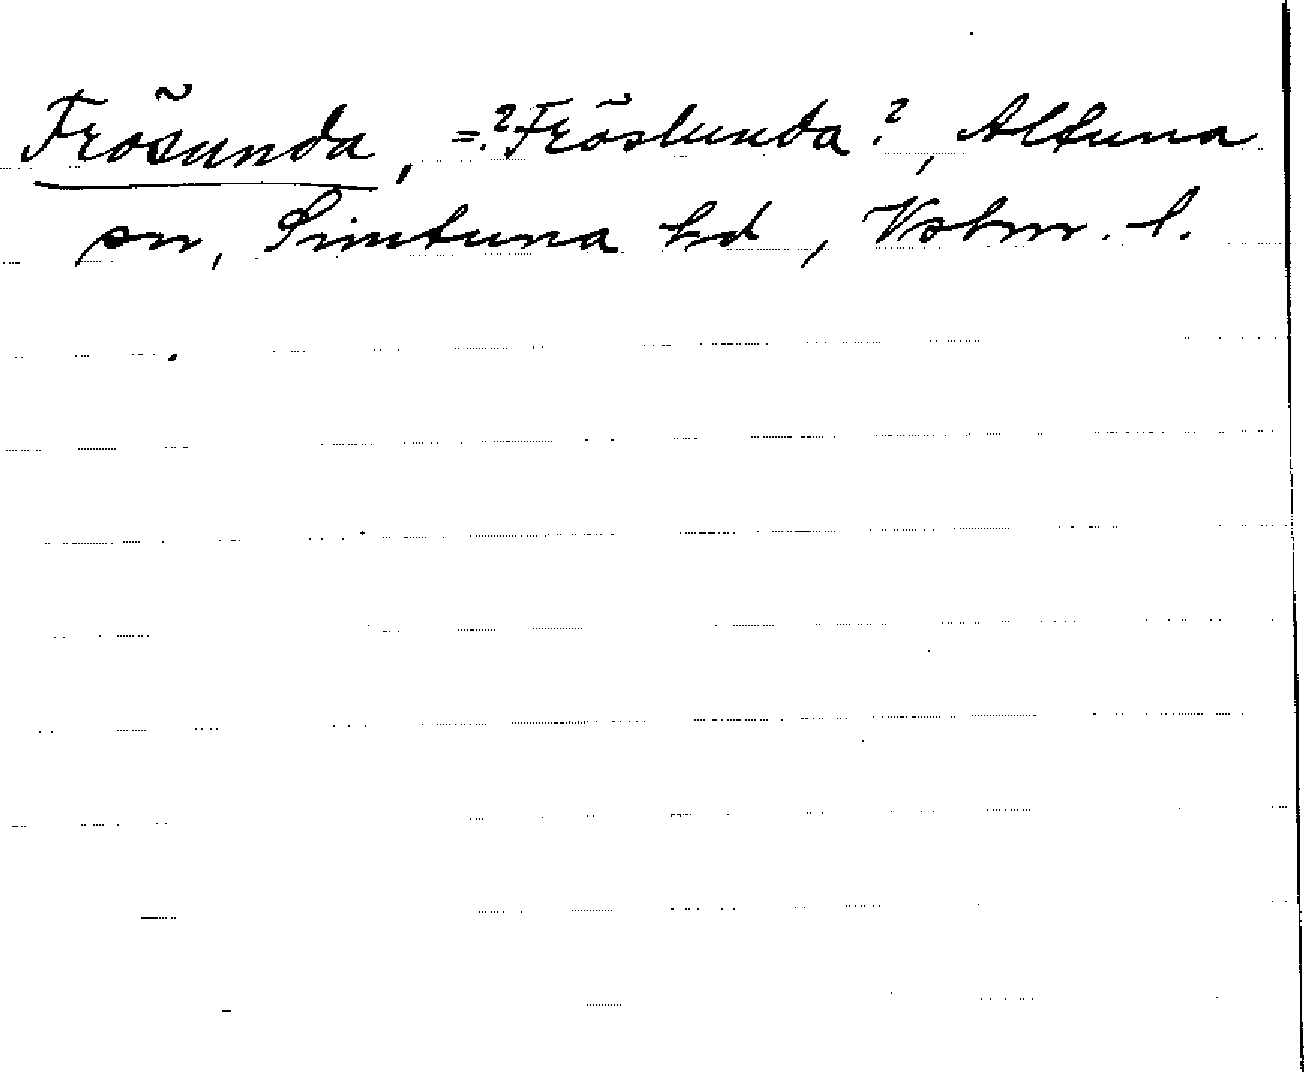 Frösunda, =?Fröslunda?, Altuna
sn, Simtuna hd, Vstm. l.